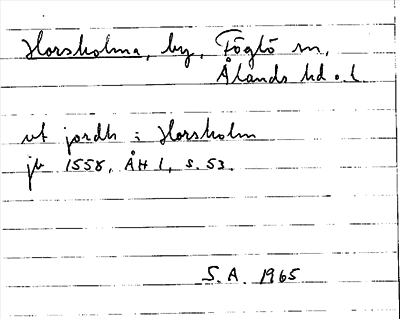 Horsholma, by, Föglö sn,
Ålands hd o. l.
vt jordh i Horsholm
jb 1558, ÅH 1, s. 53.
S.A. 1965